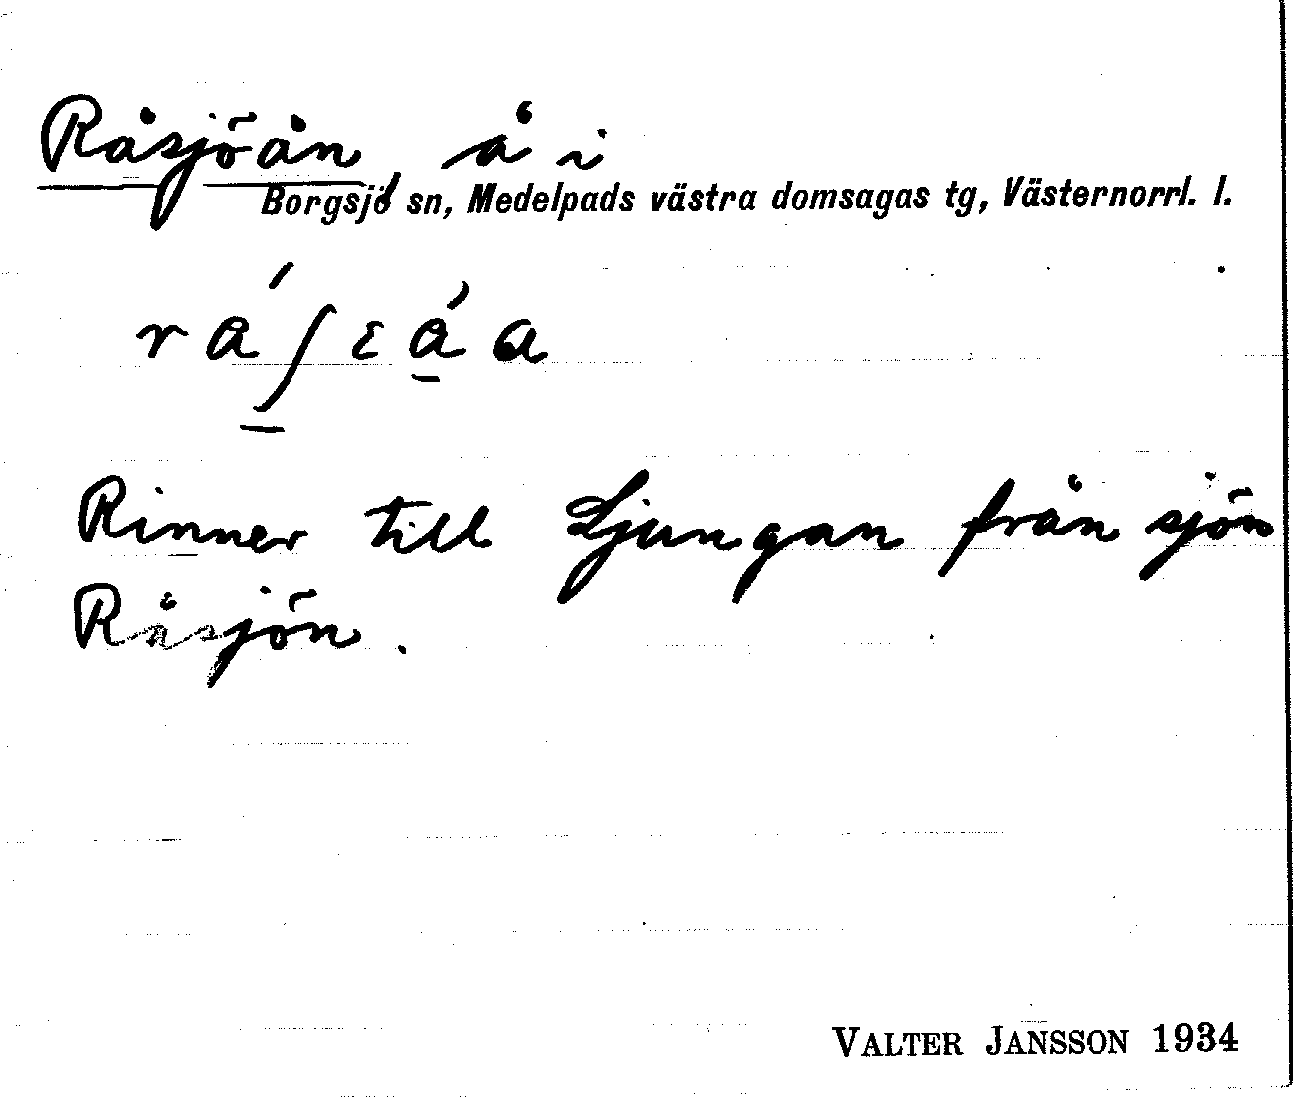 Råsjöån, å i
Borgsjö sn, Medelpads västra domsagas tg, Västernorrl. l.
Rinner till Ljungan från sjön
Råsjön.
VALTER JANSSON 1934